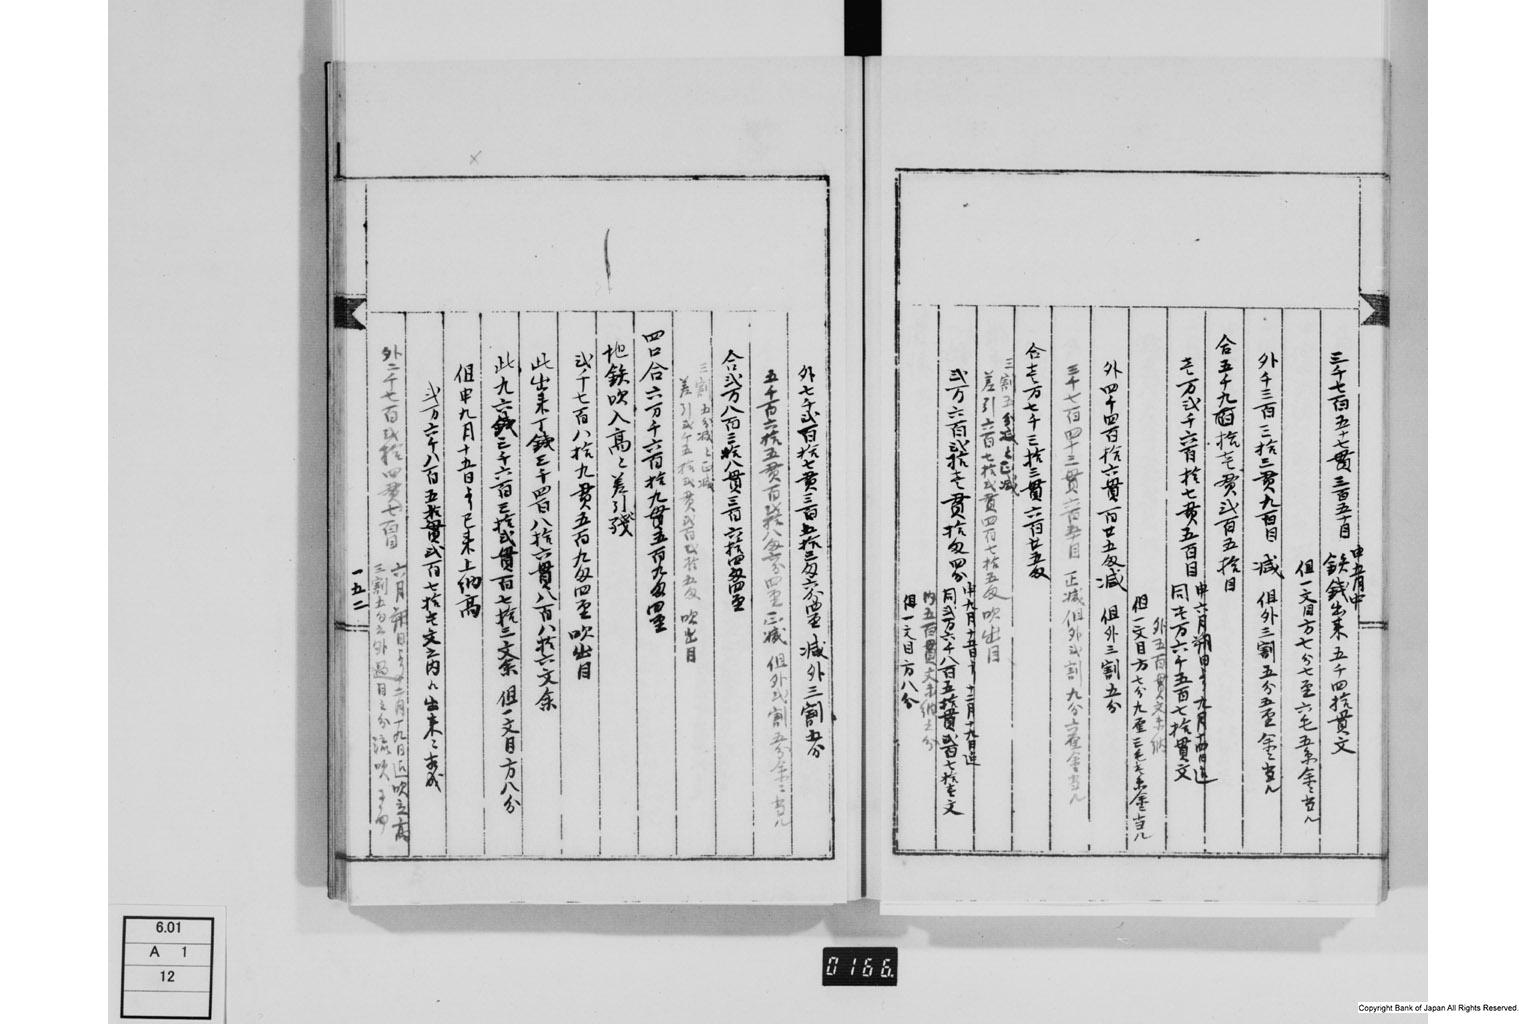 三千七百五十七貫三百五十目
申五月中
鉄銭出来五千四拾貫文
但一文目方七分七厘六毛五糸余ニ当ル
外千三百三拾三貫九百目 減 但外三割五分五厘余ニ当ル
合五千九百拾壱貫弐百五拾目
壱万弐千六百拾七貫五百目
申六月朔日より九月十四日迄
同壱万六千五百七拾貫文
外五百貫文未納
但一文目方七分九厘三毛七糸余ニ当ル
外四千四百拾六貫百廿五匁減 但外三割五分
三千七百四十三貫六百五十目 正減 但外弐割九分六厘余ニ当ル
合壱万七千三拾三貫六百廿五匁
三割五分減と正減
差引六百七拾弐貫四百七拾五匁吹出目
弐万六百弐拾壱貫拾匁四分
申九月十五日より十二月十九日迄
同弐万六千八百五拾貫弐百七拾壱文
内五百貫文未納之分
但一文目方八分
外七千弐百拾七貫三百五拾三匁六分四厘 減外三割五分
五千百六拾五貫百弐拾八匁六分四厘正減 但外弐割五分余ニ当ル
合弐万八百三拾八貫三百六拾四匁四厘
三割五分減と正減
差引弐千五拾弐貫弐百弐拾五匁 吹出目
四口合六万千六百拾九貫五百九匁四厘
地鉄吹入高と差引残
弐千七百八拾九貫五百九匁四厘吹出目
此出来丁銭三千四百八拾六貫八百八拾六文余
此九六銭三千六百三拾弐貫百七拾三文余 但一文目方八分
但申九月十五日より已来上納高
弐万六千八百五拾貫弐百七拾壱文之内ニ出来ニ相成
外二千七百弐拾四貫七百目
六月朔日より十二月十九日迄吹立高
三割五分之外過目之分流吹
一五二
6.01
A 1
12
0166.
Copyright Bank of Japan All Rights Reserved.